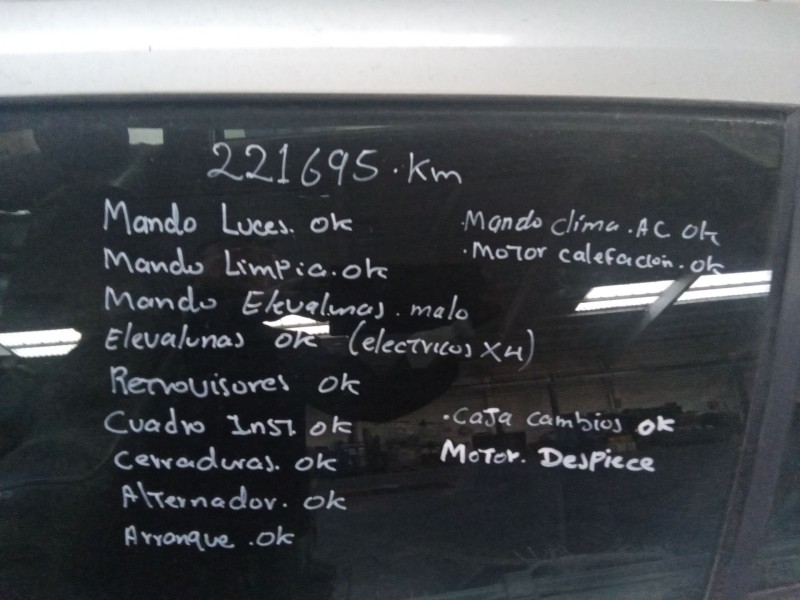 221695.Km
Mando Luces. ok
Mando Limpia.ok
Mando Elevalunas.malo
Elevalunas ok (electricos x4)
Retrovisores ok
Cuadro Inst. ok
Cerraduras. ok
Alternador. ok
Arranque.ok
.Mando clima.AC ok
.Motor calefacion.ok
.Caja cambios ok
Motor. Despiece